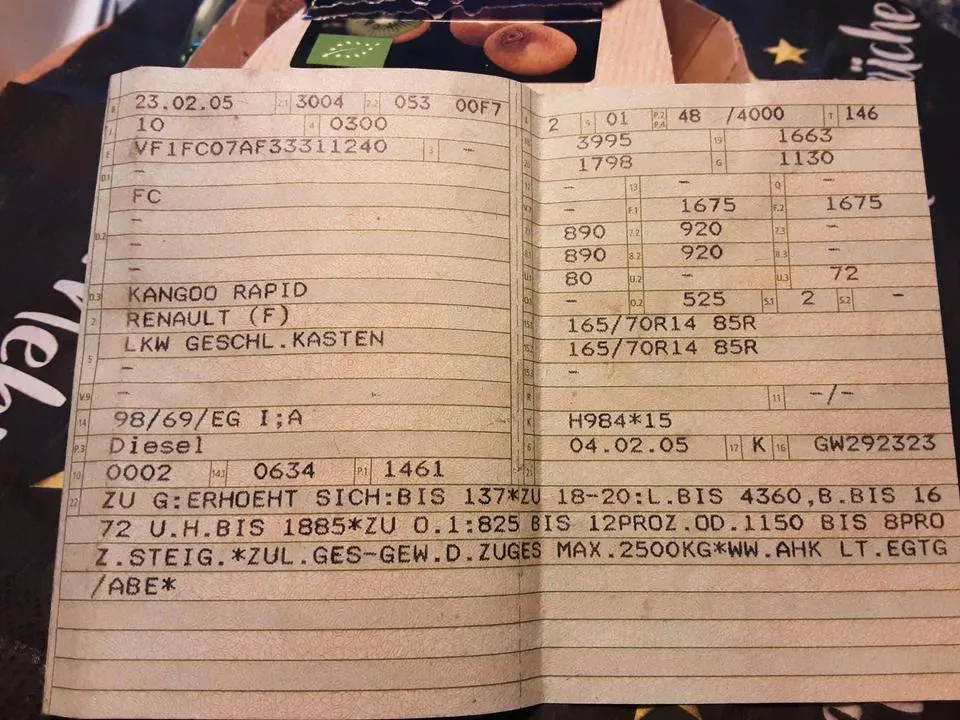 B 23.02.05 2.1 3004 2.2 053 00F7
J 10 4 0300
E VF1FC07AF33311240 3 –
D.1 –
FC
–
D.2 –
–
D.3 KANGOO RAPID
2 RENAULT (F)
LKW GESCHL.KASTEN
5 –
V.9 –
14 98/69/EG I;A
P.3 Diesel
10 0002 14.1 0634 P.1 1461
2 9 01 P.2 P.4 48 /4000 T 146
18 3995 19 1663
20 1798 G 1130
12 – 13 – Q –
V.7 – F.1 1675 F.2 1675
7.1 890 7.2 920 7.3 –
8.1 890 8.2 920 8.3 –
U.1 80 U.2 – U.3 72
O.1 – O.2 525 S.1 2 S.2 –
15.1 165/70R14 85R
15.2 165/70R14 85R
15.3 –
R 11 –/–
K H984*15
6 04.02.05 17 K 16 GW292323
21
22 ZU G:ERHOEHT SICH:BIS 137*ZU 18-20:L.BIS 4360,B.BIS 16
72 U.H.BIS 1885*ZU O.1:825 BIS 12PROZ.OD.1150 BIS 8PRO
Z.STEIG.*ZUL.GES-GEW.D.ZUGES MAX.2500KG*WW.AHK LT.EGTG
/ABE*